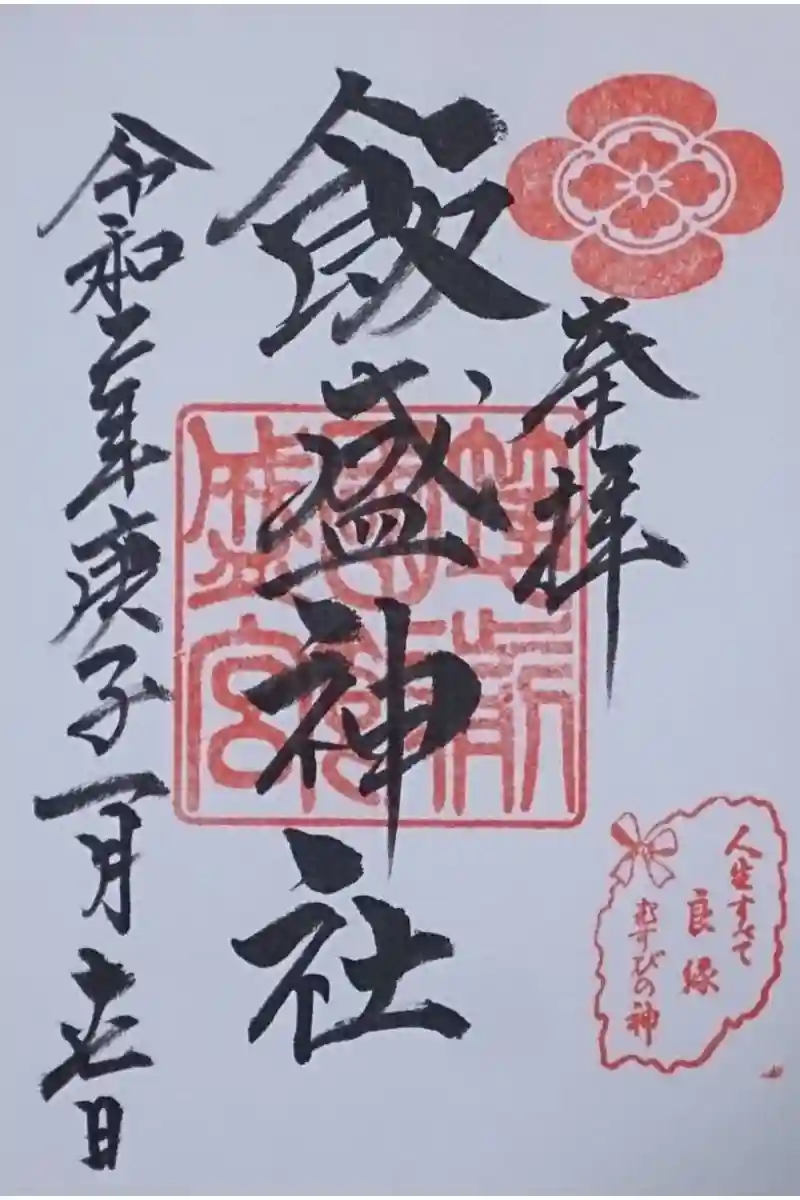 奉拝
飯盛神社
令和二年庚子一月十七日
筑前
國飯
盛宮
人生すべて
良縁
むすびの神